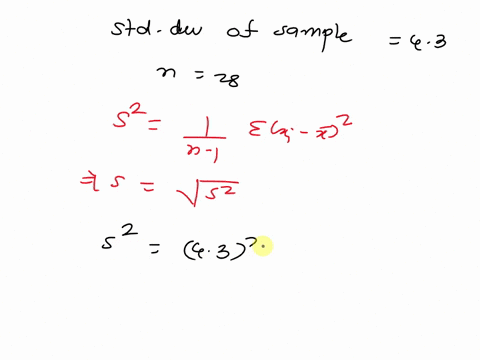 std. dev of sample = 4.3
n = 28
s² = 1/(n-1) Σ(xi - x̄)²
⇒ s = √s²
s² = (4.3)².